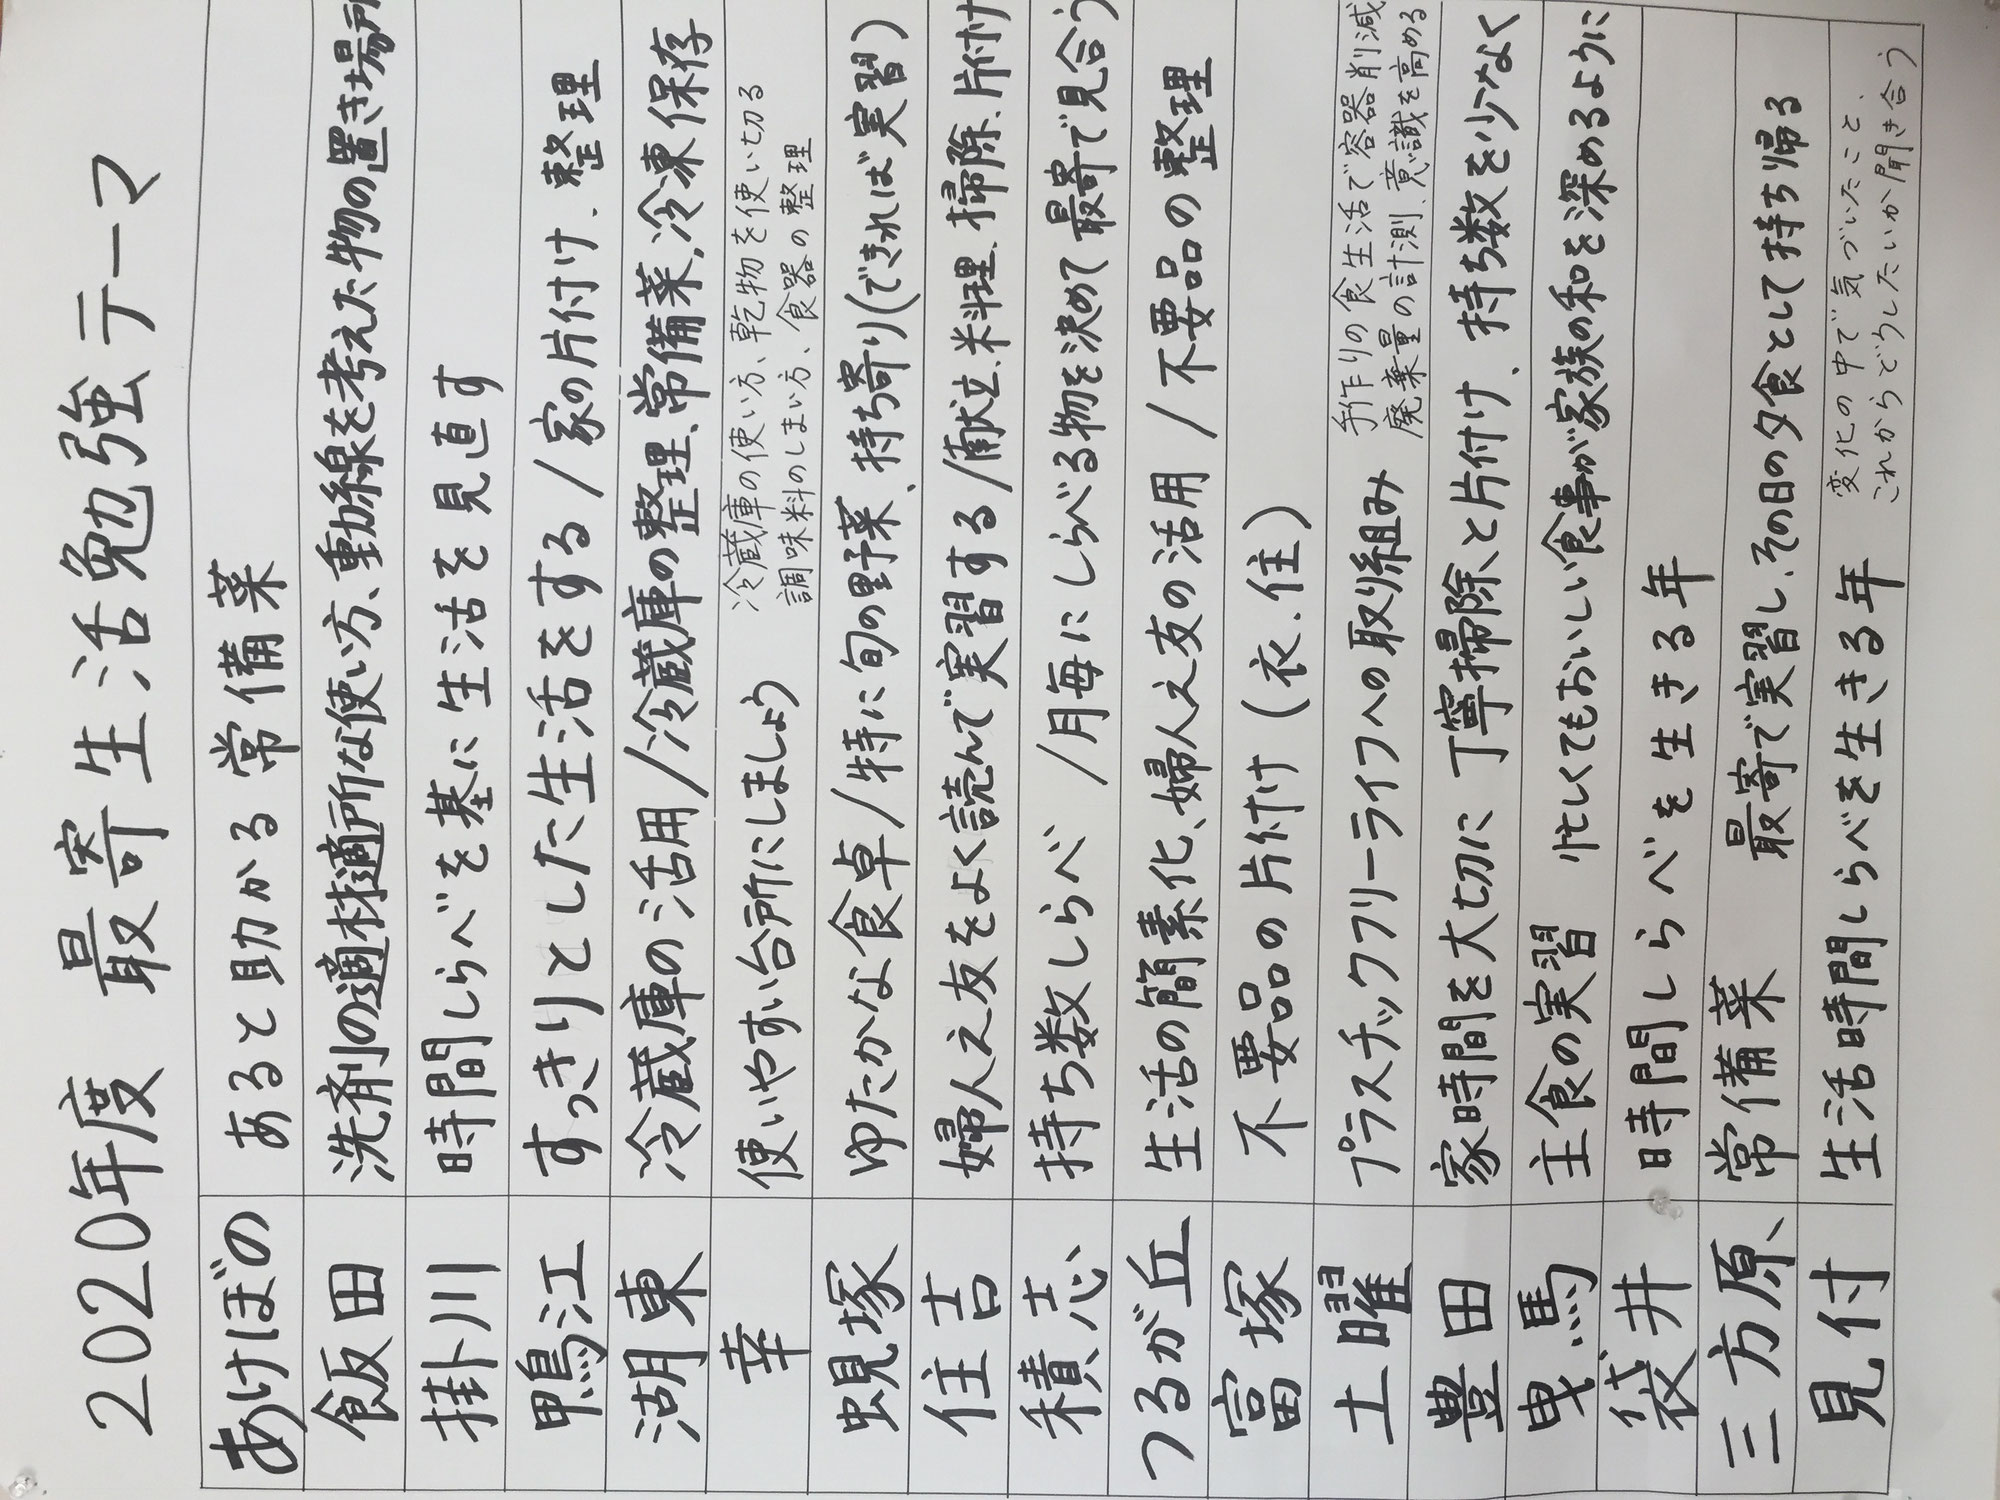 2020年度 最寄生活勉強テーマ
あけぼの あると助かる常備菜
飯田 洗剤の適材適所な使い方、動線を考えた物の置き場所
掛川 時間しらべを基に生活を見直す
鴨江 すっきりとした生活をする/家の片付け、整理
湖東 冷蔵庫の活用/冷蔵庫の整理、常備菜、冷凍保存
幸 使いやすい台所にしましょう 冷蔵庫の使い方、乾物を使い切る
調味料のしまい方、食器の整理
蜆塚 ゆたかな食卓/特に旬の野菜、持ち寄り(できれば実習)
住吉 婦人之友をよく読んで実習する/献立、料理、掃除、片付け
積志 持ち数しらべ /月毎にしらべる物を決めて最寄で見合う
つるが丘 生活の簡素化、婦人之友の活用/不要品の整理
富塚 不要品の片付け(衣、住)
土曜 プラスチックフリーライフへの取り組み 手作りの食生活で容器削減
廃棄量の計測、意識を高める
豊田 家時間を大切に 丁寧掃除、と片付け、持ち数を少なく
曳馬 主食の実習 忙しくてもおいしい食事が家族の和を深めるように
袋井 時間しらべを生きる年
三方原、 常備菜 最寄で実習し、その日の夕食として持ち帰る
見付 生活時間しらべを生きる年 変化の中で気づいたこと、
これからどうしたいか聞き合う